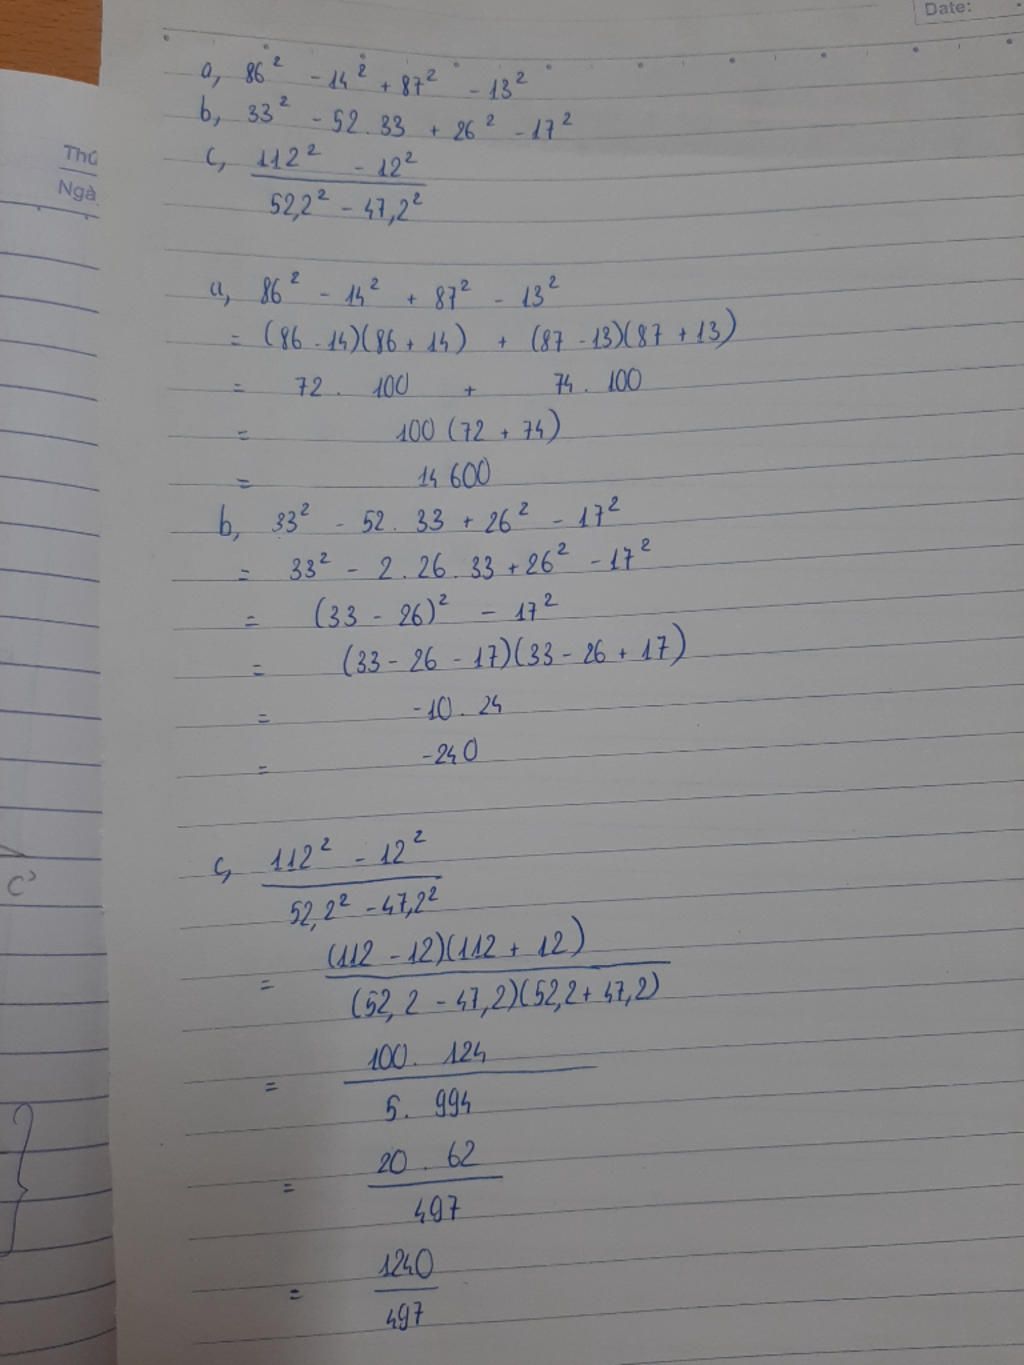 Date:
Thứ
Ngà
a, 86² - 14² + 87² - 13²
b, 33² - 52.33 + 26² - 17²
c, 112² - 12²
52,2² - 47,2²
a, 86² - 14² + 87² - 13²
= (86 - 14)(86 + 14) + (87 - 13)(87 + 13)
= 72 . 100 + 74 . 100
= 100 (72 + 74)
= 14 600
b, 33² - 52 . 33 + 26² - 17²
= 33² - 2 . 26 . 33 + 26² - 17²
= (33 - 26)² - 17²
= (33 - 26 - 17)(33 - 26 + 17)
= -10 . 24
= -240
c, 112² - 12²
52,2² - 47,2²
= (112 - 12)(112 + 12)
(52,2 - 47,2)(52,2 + 47,2)
= 100 . 124
5 . 994
= 20 . 62
497
= 1240
497
C'